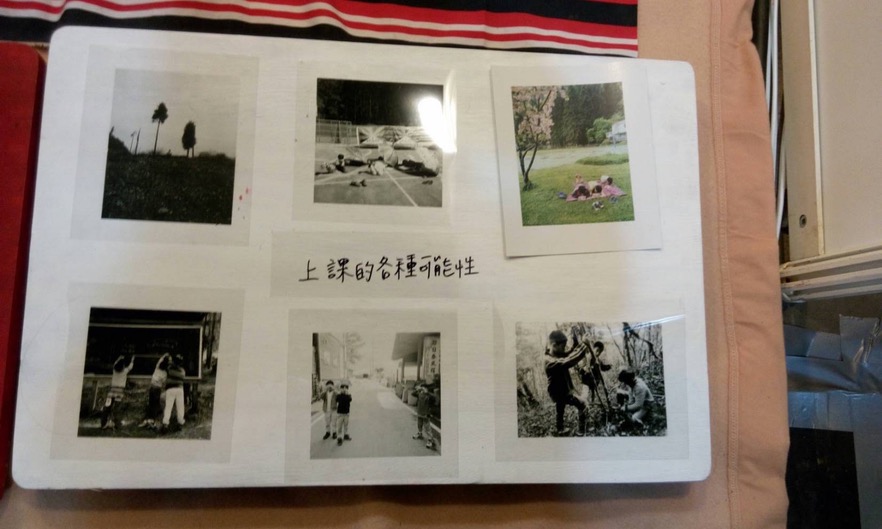 上課的各種可能性